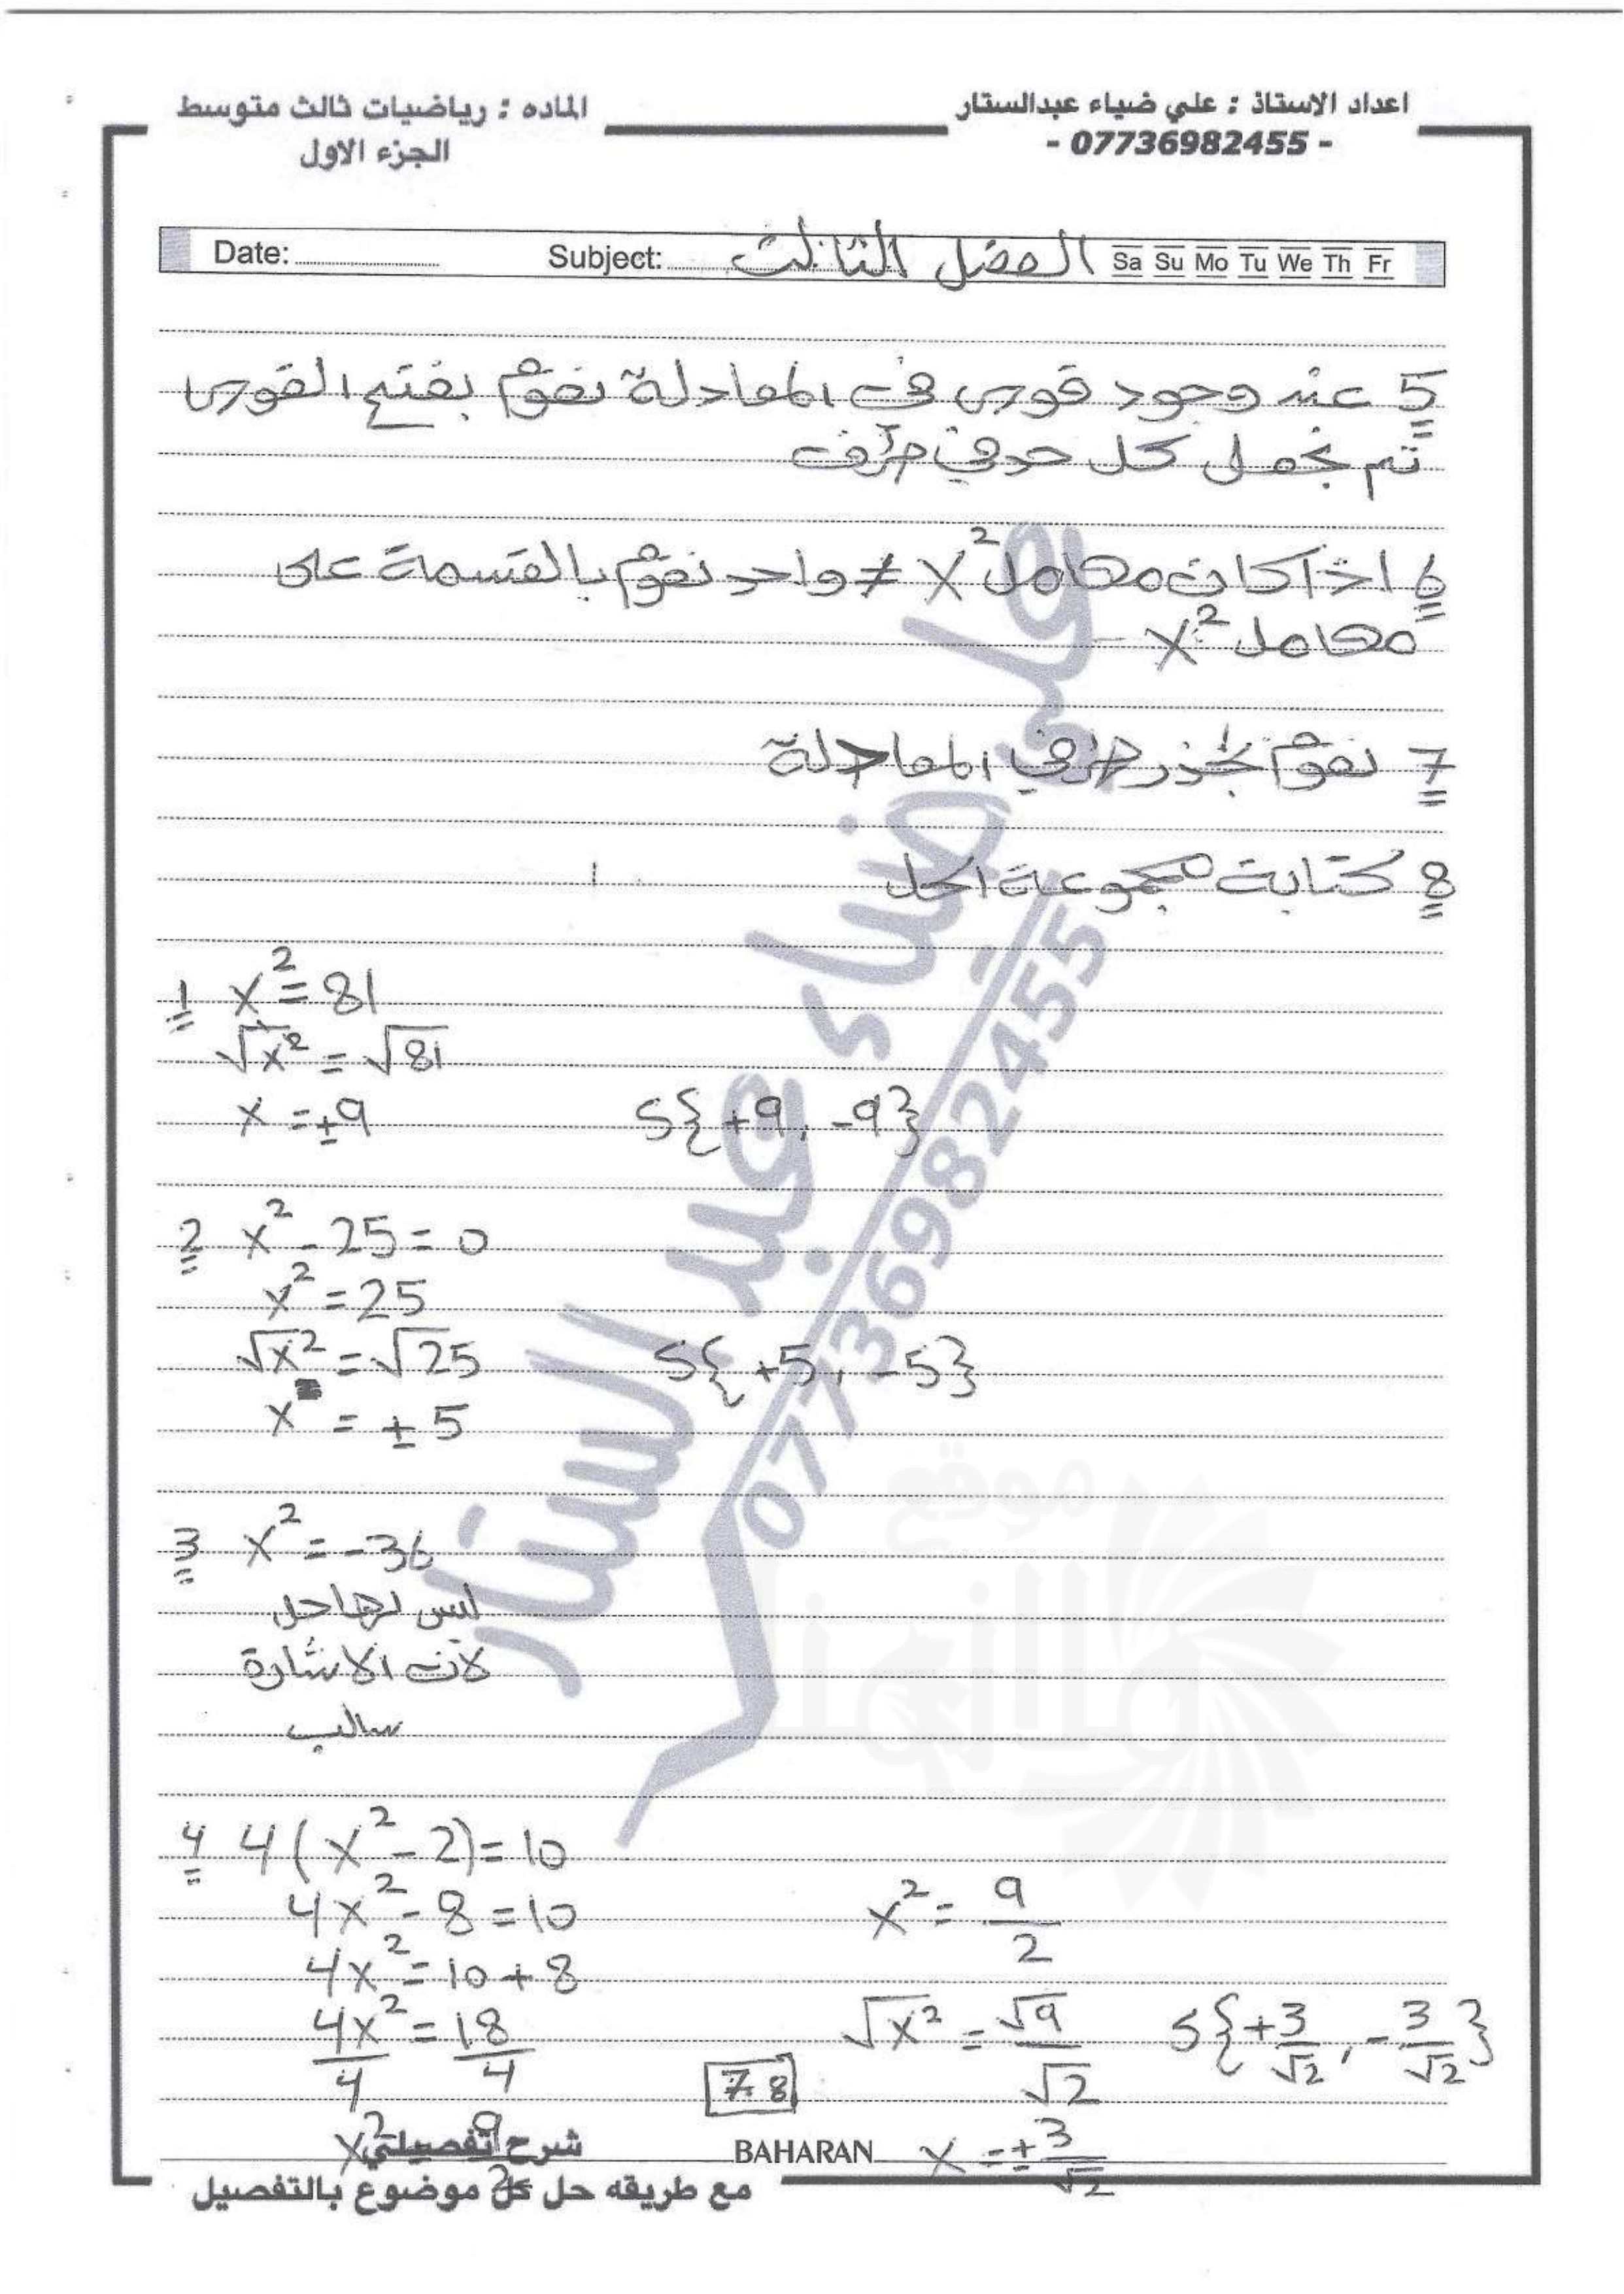 اعداد الاستاذ : علي ضياء عبدالستار
- 07736982455 -
الماده : رياضيات ثالث متوسط
الجزء الاول
Date: Subject: الفصل الثالث Sa Su Mo Tu We Th Fr
5 عند وجود قوس في المعادلة نقوم بفتح القوس
ثم نجعل كل حد في طرف
6 اذا كان معامل x² ≠ واحد نقوم بالقسمة على
معامل x²
7 نقوم بجذر طرفي المعادلة
8 كتابة مجموعة الحل
1 x² = 81
√x² = √81
x = ±9 S{+9, -9}
2 x² - 25 = 0
x² = 25
√x² = √25 S{+5, -5}
x = ±5
3 x² = -36
ليس لها حل
لأن الاشارة
سالب
4 4(x² - 2) = 10
4x² - 8 = 10
4x² = 10 + 8
4x²/4 = 18/4
x² = 9/2
x² = 9/2
√x² = √9/√2 S{+3/√2, -3/√2}
x = ±3/√2
78
BAHARAN
شرح تفصيلي
مع طريقه حل كل موضوع بالتفصيل
علي ضياء عبد الستار
07736982455
موقع